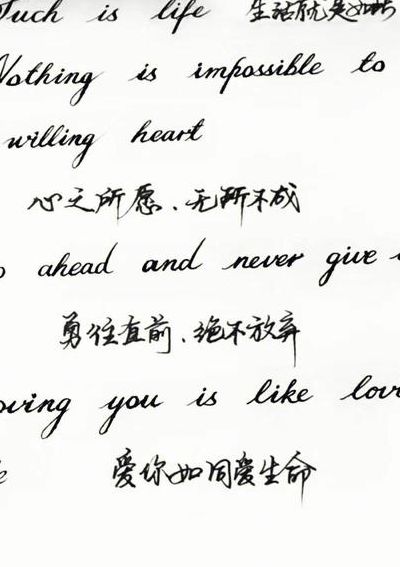 Such is life 生活就是如此
Nothing is impossible to
willing heart
心之所愿、无所不成
o ahead and never give
勇往直前、绝不放弃
oving you is like lov
爱你如同爱生命